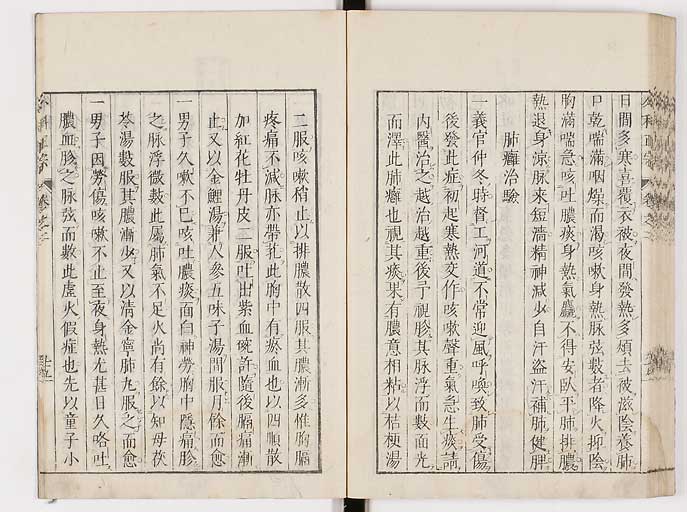 日間多寒喜覆衣被夜間發熱多煩去被滋陰養肺
口乾喘滿咽燥而渴咳嗽身熱脉弦數者降火抑陰
胸滿喘急咳吐膿痰身熱氣麤不得安臥平肺排膿
熱退身涼脉來短濇精神減少自汗盜汗補肺健脾
肺癰治驗
一義官仲冬時督工河道不常迎風呼喚致肺受傷
後發此症初起寒熱交作咳嗽聲重氣急生痰請
內醫治之越治越重後予視胗其脉浮而數面光
而澤此肺癰也視其痰果有膿意相粘以桔梗湯
二服咳嗽稍止以排膿散四服其膿漸多惟胸膈
疼痛不減脉亦帶扎此胸中有瘀血也以四順散
加紅花牡丹皮二服吐出紫血碗許隨後膈痛漸
止又以金鯉湯兼人參五味子湯間服月餘而愈
一男子久嗽不已咳吐膿痰面白神勞胸中隱痛胗
之脉浮微數此屬肺氣不足火尚有餘以知母茯
苓湯數服其膿漸少又以清金寧肺丸服之而愈
一男子因勞傷咳嗽不止至夜身熱尤甚日久咯吐
膿血胗之脉弦而數此虛火假症也先以童子小
外科正宗
卷之二